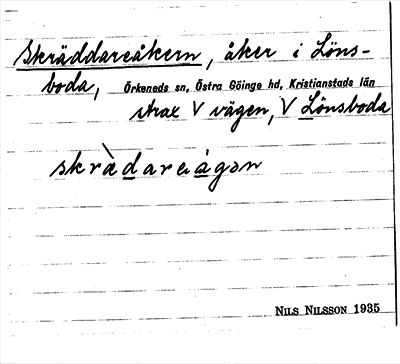 Skräddareåkern, åker i Löns-
boda, Örkeneds sn, Östra Göinge hd, Kristianstads län
strax V vägen, V Lönsboda
skrὰdareågən
NILS NILSSON 1935